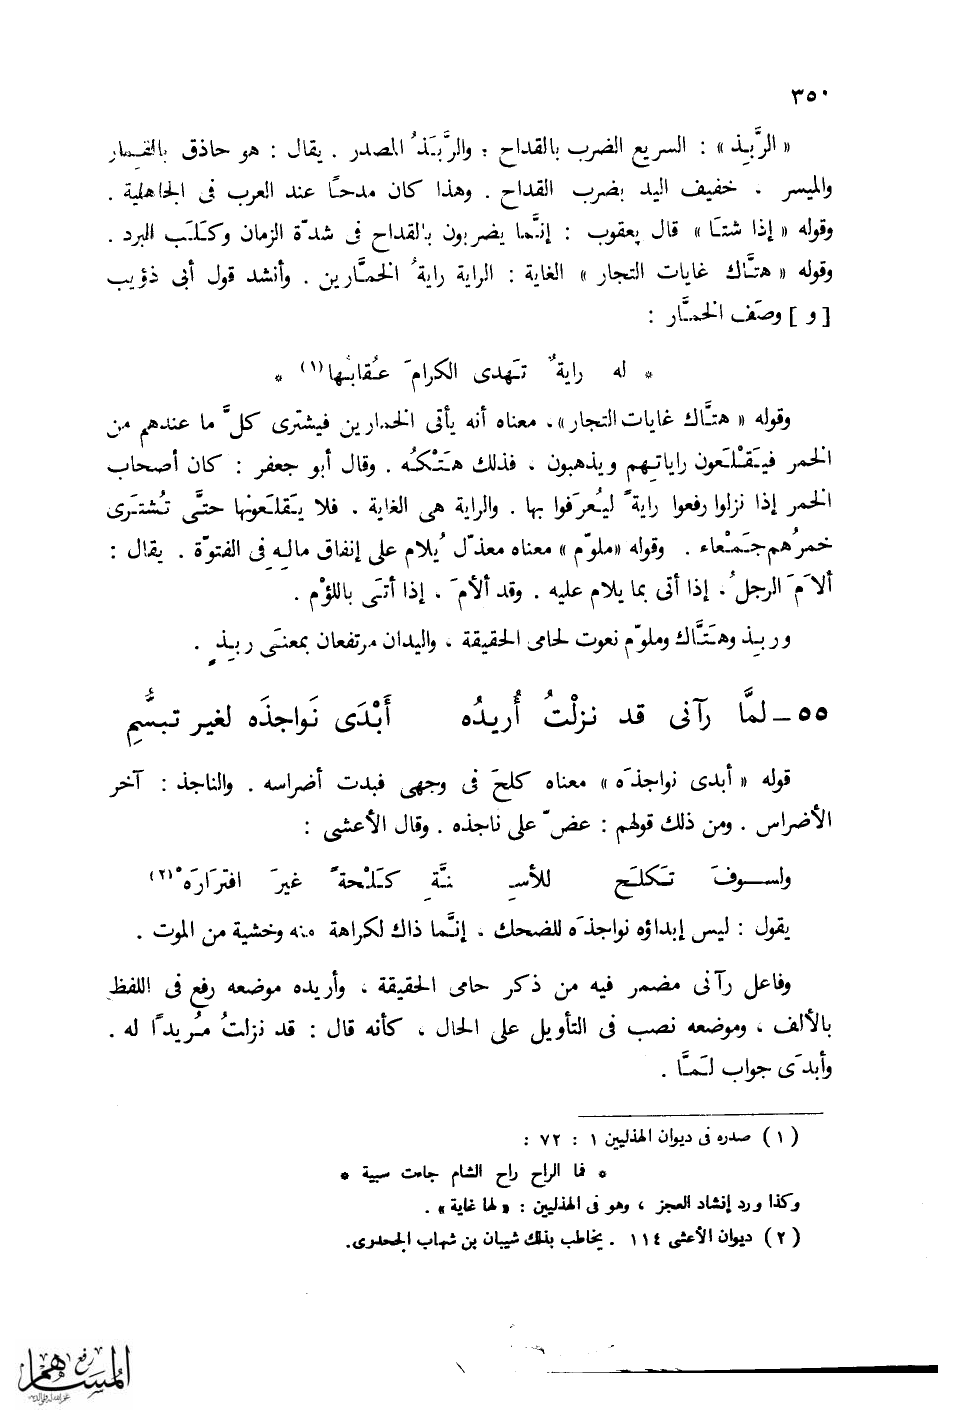 ٣٥٠
« الرَّبِذ » : السريع الضرب بالقداح ؛ والرَّبَذُ المصدر . يقال : هو حاذق بالقمار
والميسر . خفيف اليد بضرب القداح . وهذا كان مدحًا عند العرب فى الجاهلية .
وقوله « إذا شتَا » قال يعقوب : إنَّما يضربون بالقداح فى شدّة الزمان وكَلَب البرد .
وقوله « هتَّاك غايات التجار » الغاية : الراية رايةُ الخمَّارين . وأنشد قول أبى ذؤيب
[ و ] وصَف الخمَّار :
* له رايةٌ تَهدى الكرامَ عُقابُها (١) *
وقوله « هتَّاك غايات التجار » ، معناه أنه يأتى الخمارين فيشترى كلَّ ما عندهم من
الخمر فيَقْلَعون راياتِهم ويذهبون ، فذلك هَتْكُه . وقال أبو جعفر : كان أصحاب
الخمر إذا نزلوا رفعوا رايةً ليُعرَفوا بها . والراية هى الغاية . فلا يَقلَعونها حتَّى تُشتَرى
خمرُهم جَمْعاء . وقوله «ملوّم » معناه معذّل يُلام على إنفاق مالِهِ فى الفتوّة . يقال :
ألاَمَ الرجلُ ، إذا أتى بما يلام عليه . وقد ألأمَ ، إذا أتَى باللؤْم .
وربِذ وهَتَّاك وملوّم نعوت لحامى الحقيقة ، واليدان مرتفعان بمعنَى ربِذٍ .
٥٥ – لمَّا رآنى قد نزلْتُ أُريدُه أَبْدَى نَواجذَه لغير تبسُّمِ
قوله « أبدى نواجذَه » معناه كلحَ فى وجهى فبدت أضراسه . والناجذ : آخر
الأضراس . ومن ذلك قولهم : عضّ على ناجذه . وقال الأعشى :
ولسوفَ تَكلَح للأسِنَّةِ كَلْحةً غيرَ افترَارَهْ (٢)
يقول : ليس إبداؤه نواجذَه للضحك ، إنَّما ذاك لكراهة منه وخشية من الموت .
وفاعل رآنى مضمر فيه من ذكر حامى الحقيقة ، وأريده موضعه رفع فى اللفظ
بالألف ، وموضعه نصب فى التأويل على الحال ، كأنه قال : قد نزلتُ مُريدًا له .
وأبدَى جواب لَمَّا .
( ١ ) صدره فى ديوان الهذليين ١ : ٧٢ :
* فما الراح راح الشام جاءت سبية *
وكذا ورد إنشاد العجز ، وهو فى الهذليين : « لها غاية » .
( ٢ ) ديوان الأعشى ١١٤ . يخاطب بذلك شيبان بن شهاب الجحدرى.
رفع
المساهم